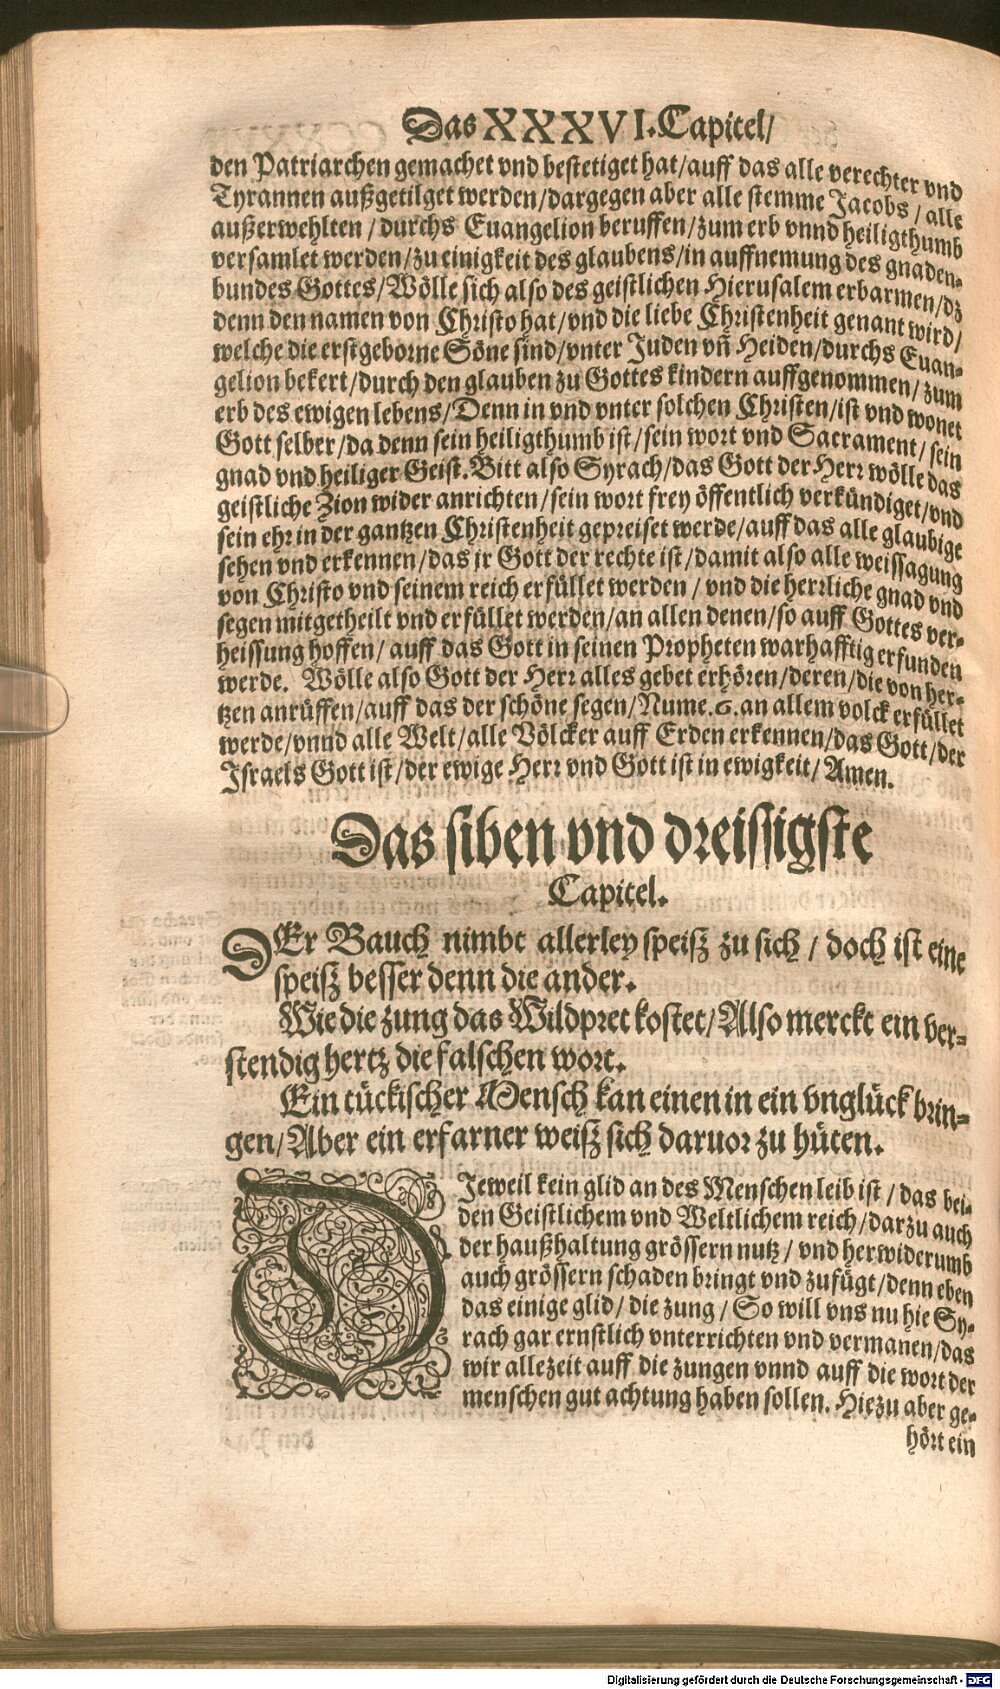 Das XXXVI. Capitel/
den Patriarchen gemachet vnd bestetiget hat/auff das alle verechter vnd
Tyrannen außgetilget werden/dargegen aber alle stemme Jacobs/alle
außerwehlten/durchs Euangelion beruffen/zum erb vnnd heiligthumb
versamlet werden/zu einigkeit des glaubens/in auffnemung des gnaden-
bundes Gottes/Wölle sich also des geistlichen Hierusalem erbarmen/dz
denn den namen von Christo hat/vnd die liebe Christenheit genant wird/
welche die erstgeborne Söne sind/vnter Juden vñ Heiden/durchs Euan-
gelion bekert/durch den glauben zu Gottes kindern auffgenommen/zum
erb des ewigen lebens/Denn in vnd vnter solchen Christen/ist vnd wonet
Gott selber/da denn sein heiligthumb ist/sein wort vnd Sacrament/sein
gnad vnd heiliger Geist. Bitt also Syrach/das Gott der Herr wölle das
geistliche Zion wider anrichten/sein wort frey öffentlich verkündiget/vnd
sein ehr in der gantzen Christenheit gepreiset werde/auff das alle glaubige
sehen vnd erkennen/das jr Gott der rechte ist/damit also alle weissagung
von Christo vnd seinem reich erfüllet werden/vnd die herrliche gnad vnd
segen mitgetheilt vnd erfüllet werden/an allen denen/so auff Gottes ver-
heissung hoffen/auff das Gott in seinen Propheten warhafftig erfunden
werde. Wölle also Gott der Herr alles gebet erhören/deren/die von her-
tzen anrüffen/auff das der schöne segen/Nume.6.an allem volck erfüllet
werde/vnnd alle Welt/alle Völcker auff Erden erkennen/das Gott/der
Israels Gott ist/der ewige Herr vnd Gott ist in ewigkeit/Amen.
Das siben vnd dreissigste
Capitel.
DEr Bauch nimbt allerley speiß zu sich/doch ist eine
speiß besser denn die ander.
Wie die zung das Wildpret kostet/Also merckt ein ver-
stendig hertz die falschen wort.
Ein tückischer Mensch kan einen in ein vnglück brin-
gen/Aber ein erfarner weiß sich daruor zu hüten.
DJeweil kein glid an des Menschen leib ist/das bei-
den Geistlichem vnd Weltlichem reich/darzu auch
der haußhaltung grössern nutz/vnd herwiderumb
auch grössern schaden bringt vnd zufügt/denn eben
das einige glid/die zung/So will vns nu hie Sy-
rach gar ernstlich vnterrichten vnd vermanen/das
wir allezeit auff die zungen vnnd auff die wort der
menschen gut achtung haben sollen. Hiezu aber ge-
hört ein
Digitalisierung gefördert durch die Deutsche Forschungsgemeinschaft - DFG